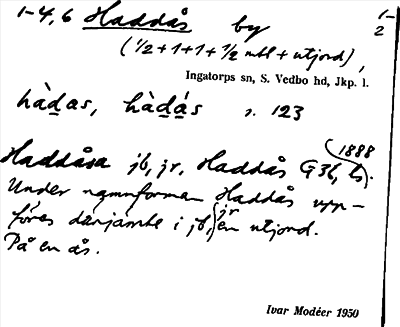 1-4,6 Haddås by 1-2
(1/2+1+1+1/2 mtl + utjord),
Ingatorps sn, S. Vedbo hd, Jkp. l.
hàdas, hàdås s. 123
Haddåsa jb, jr, Haddås G3b, ls (1888).
Under namnformen Haddås upp-
föres därjämte i jb, jr en utjord.
På en ås.
Ivar Modéer 1950